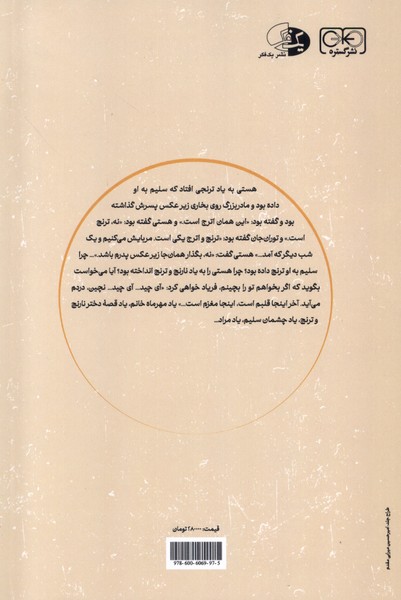 نشر گستره
نشر یک‌فکر
هستی به یاد ترنجی افتاد که سلیم به او
داده بود و مادربزرگ روی بخاری زیر عکس پسرش گذاشته
بود و گفته بود: «این همان اترج است.» و هستی گفته بود: «نه، ترنج
است.» و توران‌جان گفته بود: «ترنج و اترج یکی است. مربایش می‌کنیم و یک
شب دیگر که آمد...» هستی گفت: «نه، بگذار همان‌جا زیر عکس پدرم باشد.»... چرا
سلیم به او ترنج داده بود؟ چرا هستی را به یاد نارنج و ترنج انداخته بود؟ آیا می‌خواست
بگوید که اگر بخواهم تو را بچینم، فریاد خواهی کرد: «آی چید... آی چید... نچین، دردم
می‌آید. آخر اینجا قلبم است، اینجا مغزم است...» یاد مهرماه خانم، یاد قصهٔ دختر نارنج
و ترنج، یاد چشمان سلیم، یاد مراد...
طراح جلد: امیرحسین میرزایی مقدم
قیمت: ۲۸۰۰۰۰ تومان
978-600-6069-97-5